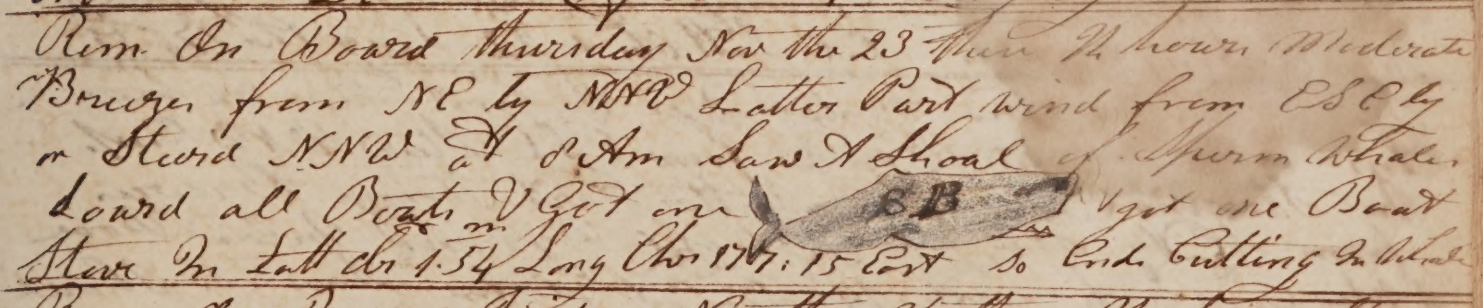 Rem On Board thursday Nov the 23 these 24 hours Moderate
Breezes from NE by NNW Latter Part wind from ESE by
Steard NNW at 8 Am Saw A Shoal of Sperm Whales
Loard all Boats & Got one SB & got one Boat
Stove In Latt obs 1.54 Long Chr 177:15 East So Ends Cutting In Whale